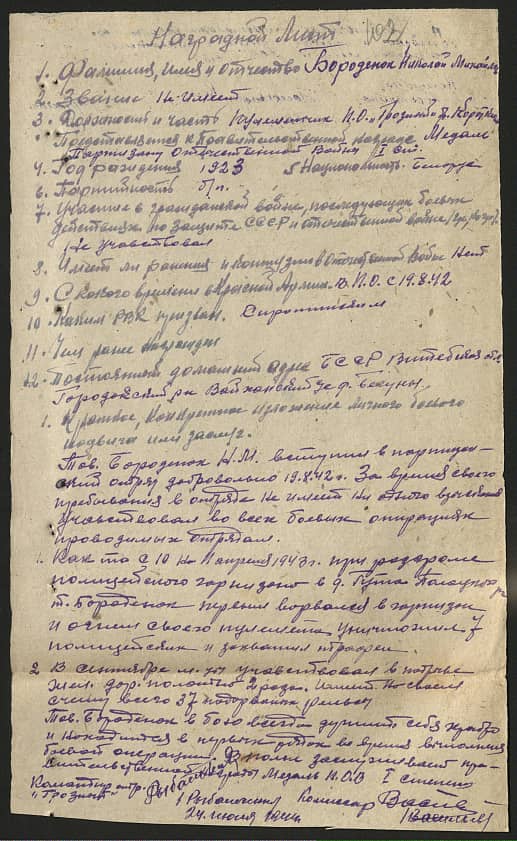 Наградной Лист
1. Фамилия, имя и отчество Бороденок Николай Михайл
2. Звание Не имеет
3. Должность и часть Пулеметчик П.О. "Грозный"
Представляется к Правительственной награде Медаль
Партизану Отечественной Войны I ст.
4. Год рождения 1923 5 Национальность Белорус
6. Партийность б/п.
7. Участие в гражданской войне, последующих боевых
действиях по защите СССР и отечественной войне
Не учавствовал
8. Имеет ли ранения и контузии в Отечественной Войне Нет
9. С какого времени в Красной Армии. В П.О. с 19.8.42
10. Каким РВК призван. Сиротинским
11. Чем ранее награжден
12. Постоянный домашний адрес БССР Витебская обл.
Городокский рн Войханский с/с
1. Краткое, конкретное изложение личного боевого
подвига или заслуг.
Тов. Бороденок Н.М. вступил в партизан-
ский отряд добровольно 19.8.42 г. За время своего
пребывания в отряде не имеет ни одного взыскания
учавствовал во всех боевых операциях
проводимых отрядом.
1. Как то с 10 на 11 апреля 1943 г. при разгроме
полицейского гарнизона в д.
т. Бороденок первым ворвался в гарнизон
и огнем своего пулемета уничтожил 7
полицейских и захватил трофеи.
2 В сентябре м-це учавствовал в подрыве
жел. дор. полотна 2 раза. Имеет на своем
счету всего 37 подорваных рельс
Тов. Бороденок в бою всегда держит себя храбро
и находится в первых рядах во время выполнения
боевой операции. Вполне заслуживает пра-
вительственной награды Медаль П.О.В I степени
Командир отр. Комиссар
"Грозный" /Рыбаченко/
24 июля 1944